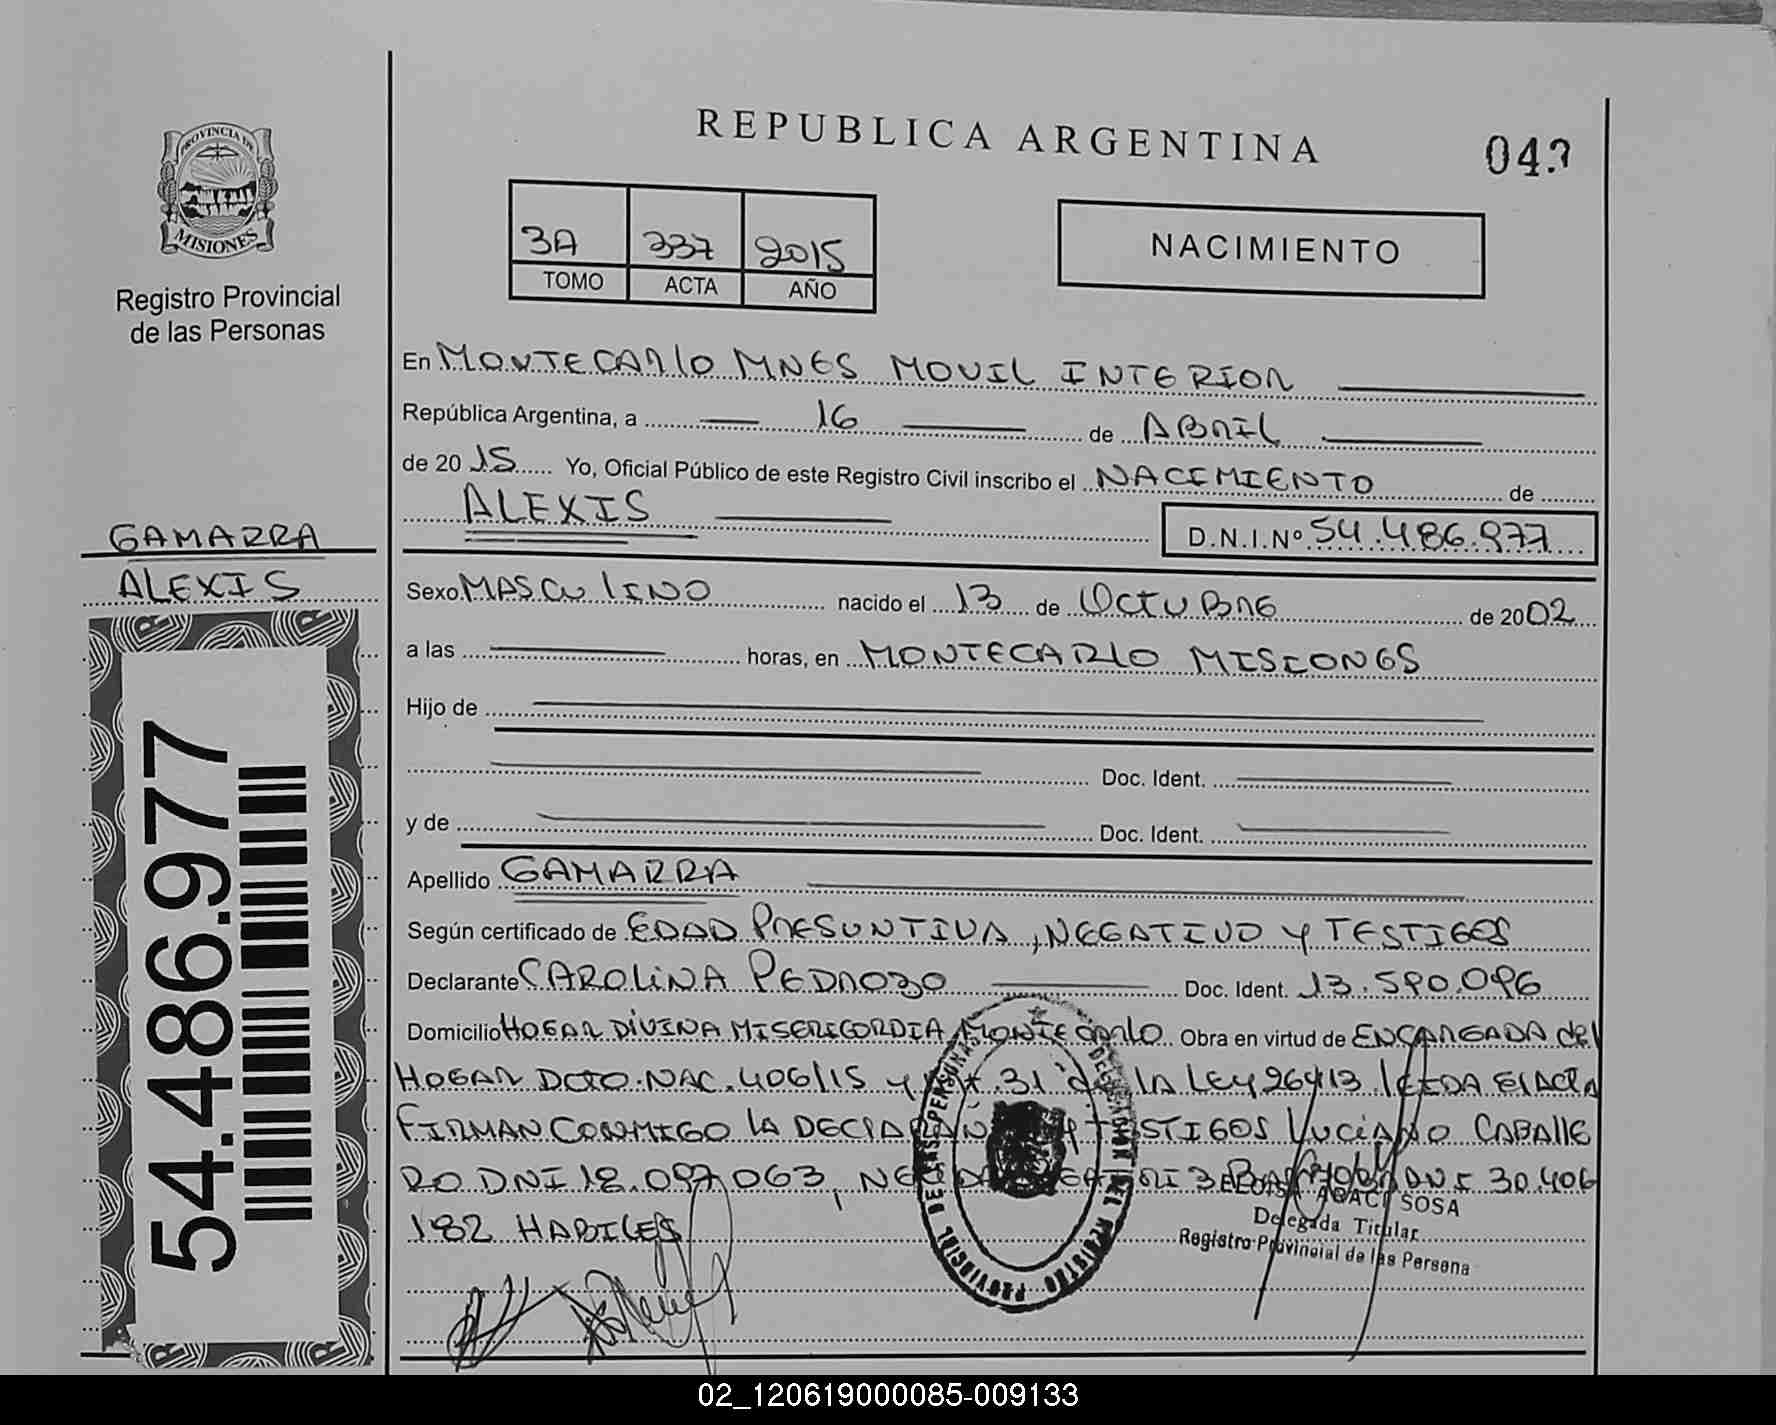 PROVINCIA DE
MISIONES
Registro Provincial
de las Personas
REPUBLICA ARGENTINA
04
3A 337 2015
TOMO ACTA AÑO
NACIMIENTO
En MONTECARLO MNES MOVIL INTERIOR
República Argentina, a 16 de ABRIL
de 2015 Yo, Oficial Público de este Registro Civil inscribo el NACIMIENTO de
ALEXIS
D.N.I.Nº 54.486.977
GAMARRA
ALEXIS
Sexo MASCULINO nacido el 13 de OCTUBRE de 2002
a las horas, en MONTECARLO MISIONES
Hijo de
Doc. Ident.
y de Doc. Ident.
Apellido GAMARRA
Según certificado de EDAD PRESUNTIVA, NEGATIVO Y TESTIGOS
Declarante CAROLINA PEDROZO Doc. Ident. 13.590.096
Domicilio HOGAR DIVINA MISERICORDIA MONTECARLO Obra en virtud de ENCARGADA del
HOGAR DCTO. NAC. 406/15 Y 31 LA LEY 26413 LEIDA El ACTA
FIRMAN CONMIGO LA DECLARAN TESTIGOS LUCIANO CABALLE
RO DNI 18.097.063, DNI 30.406
182 HABILES
54.486.977
REGISTRO PROVINCIAL DE LAS PERSONAS
SOSA
Delegada Titular
Registro Provincial de las Persona
02_120619000085-009133